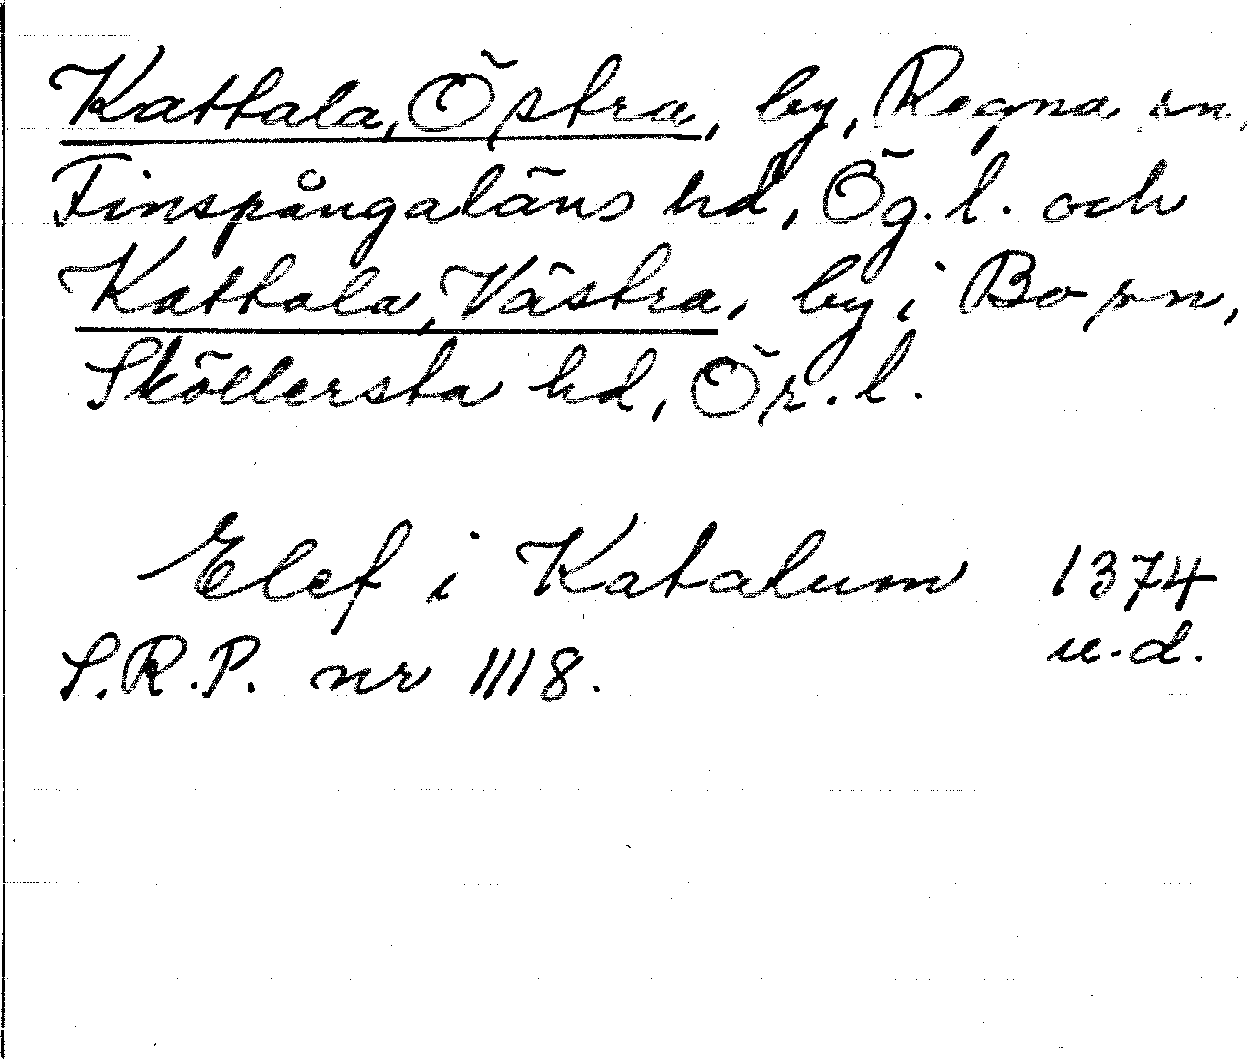 Kattala, Östra, by, Regna sn,
Finspångaläns hd, Ög.l. och
Kattala, Västra, by i Bo sn,
Sköllersta hd, Ör.l.
Elef i Katalum 1374
u.d.
S.R.P. nr 1118.